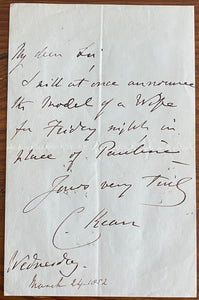 My dear Sir
I will at once announce
the Model of a Wife
for Friday night in
place of Pauline
Yours very truly
C. Kean
Wednesday.
March 24. 1852